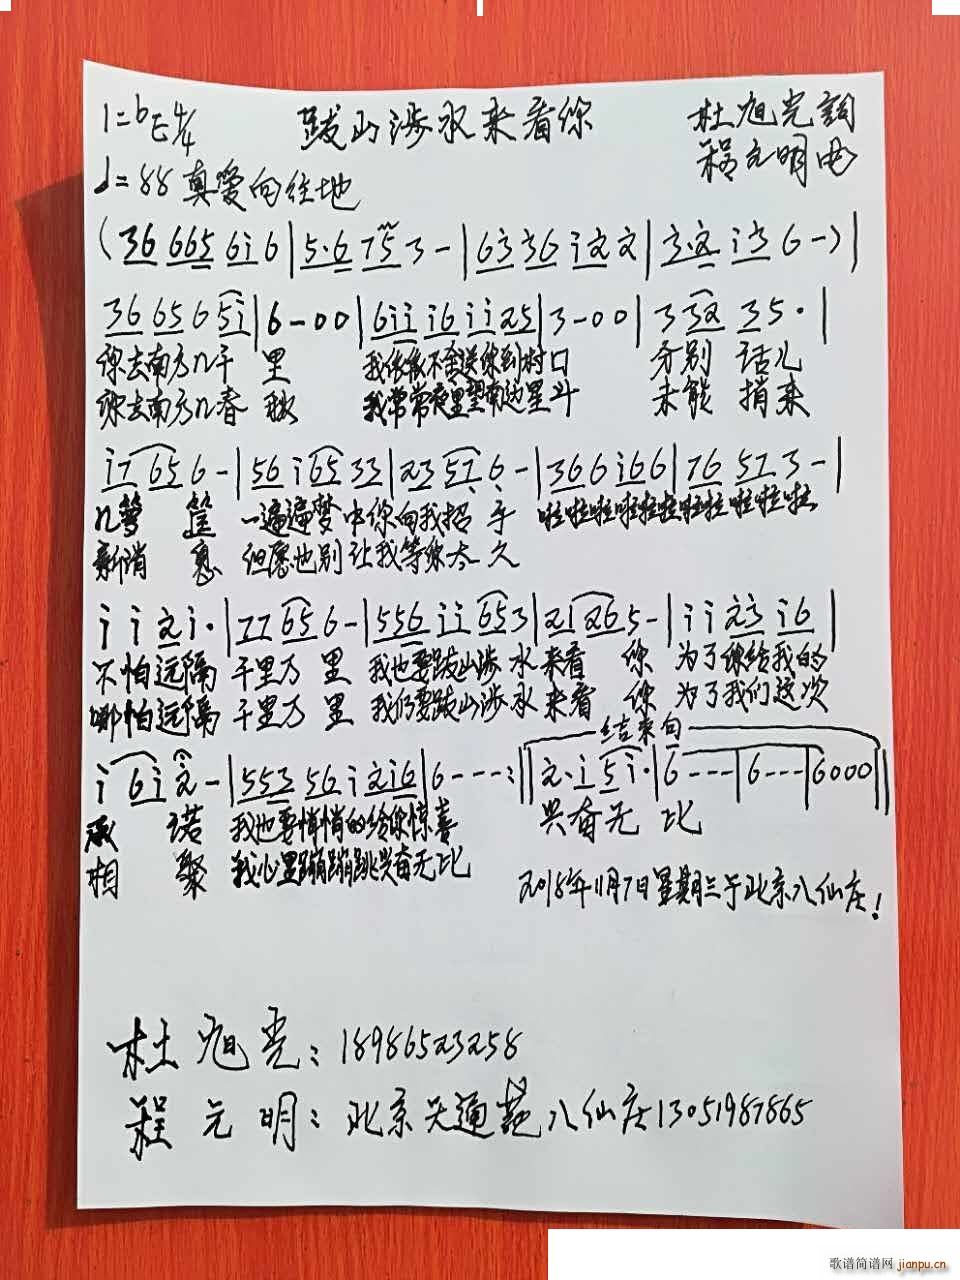 1=bE 4/4 跋山涉水来看你 杜旭光词
程元明曲
♩=88 真爱向往地
(36 665 6i6|5·6 75 3-|63 36 i22|3·2 i3 6-)|
36 656 5i|6-00|6ii i6 ii25|3-00|3 32 35·|
你去南方几千里 我依依不舍送你到村口 分别话儿
你去南方几春秋 我常常夜里望南边星斗 未能捎来
i7 65 6-|56 i65 33|23 57 6-|366 i66|76 57 3-|
几箩筐 一遍遍梦中你向我招手 啦啦啦啦啦啦啦啦啦啦啦
新消息 但愿也别让我等你太久
i i 2i·|77 65 6-|556 ii 653|21 265-|i i 23 i6|
不怕远隔千里万里 我也要跋山涉水来看你 为了你给我的
哪怕远隔千里万里 我们要跋山涉水来看你 为了我们这次
结束句
i 6i 2-|553 56 i 2i6|6---:‖2·i 5i·|6---|6---|6000‖
承诺 我也要悄悄的给你惊喜 兴奋无比
相聚 我心里蹦蹦跳兴奋无比
2018年11月7日星期三于北京八仙庄!
杜旭光:18986523258
程元明:北京天通苑八仙庄13051987865
歌谱简谱网 jianpu.cn